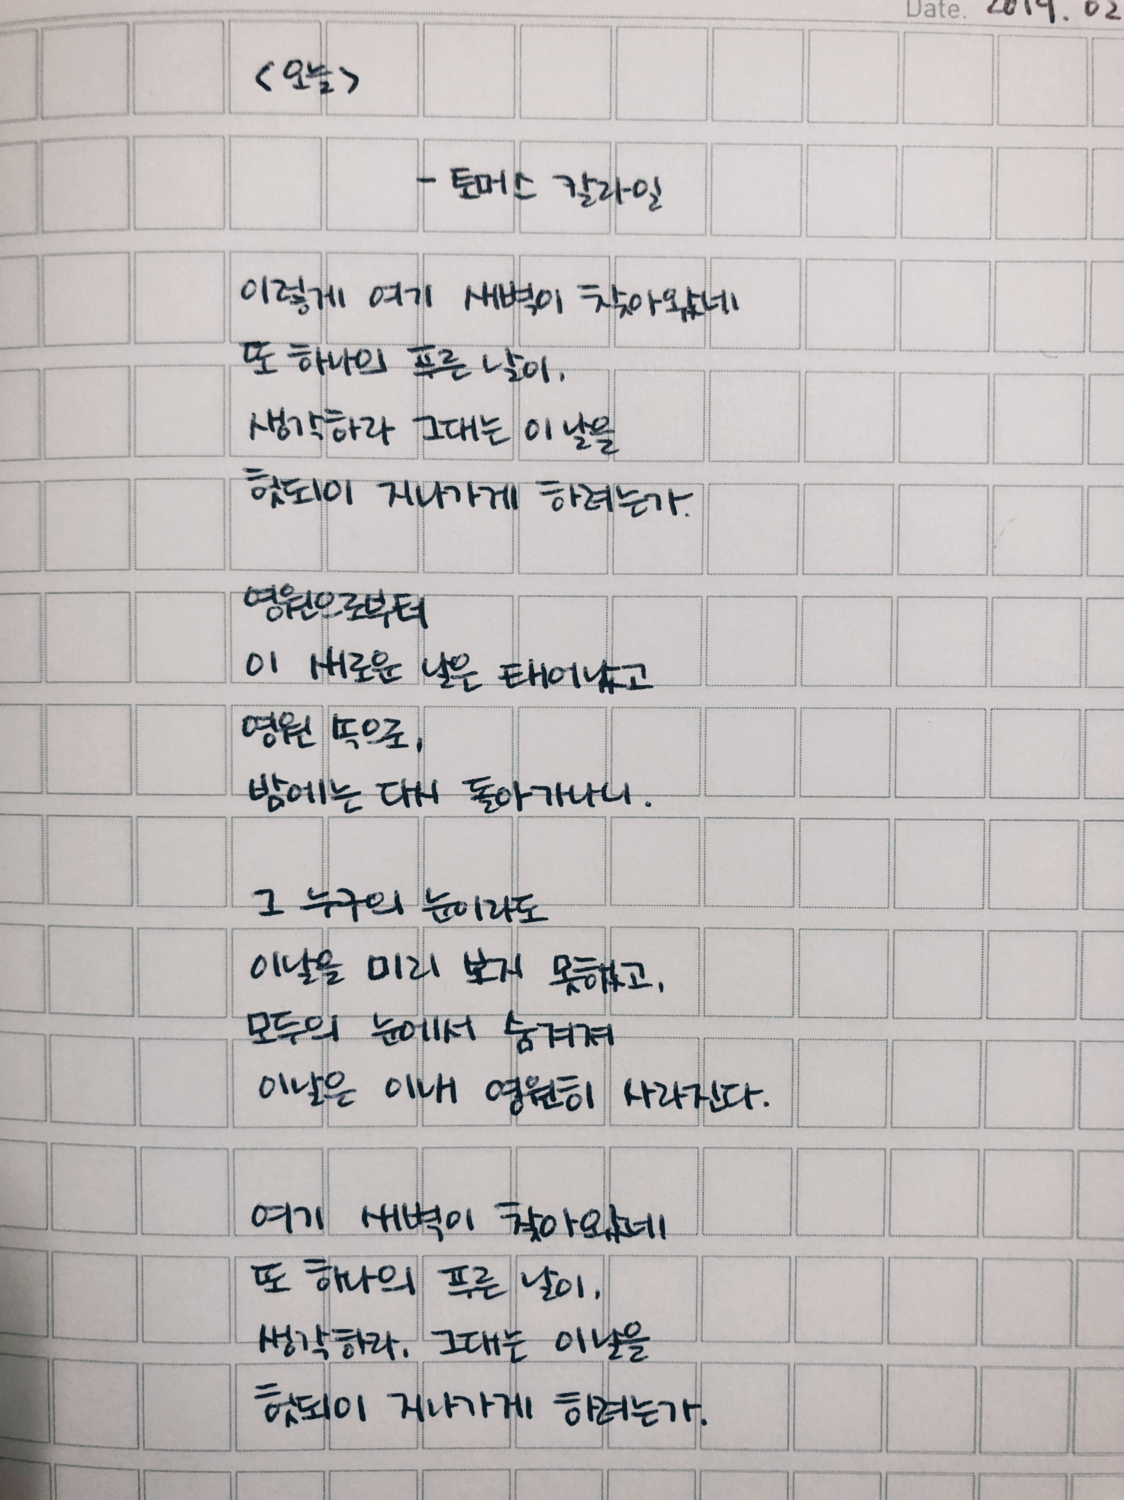 Date. 2019. 02
<오늘>
- 토머스 칼라일
이렇게 여기 새벽이 찾아왔네
또 하나의 푸른 날이.
생각하라 그대는 이 날을
헛되이 지나가게 하려는가.
영원으로부터
이 새로운 날은 태어났고
영원 뜩으로,
밤에는 다시 돌아가나니.
그 누구의 눈이라도
이날을 미리 보지 못했고,
모두의 눈에서 숨겨져
이날은 이내 영원히 사라진다.
여기 새벽이 찾아왔네
또 하나의 푸른 날이.
생각하라. 그대는 이날을
헛되이 지나가게 하려는가.